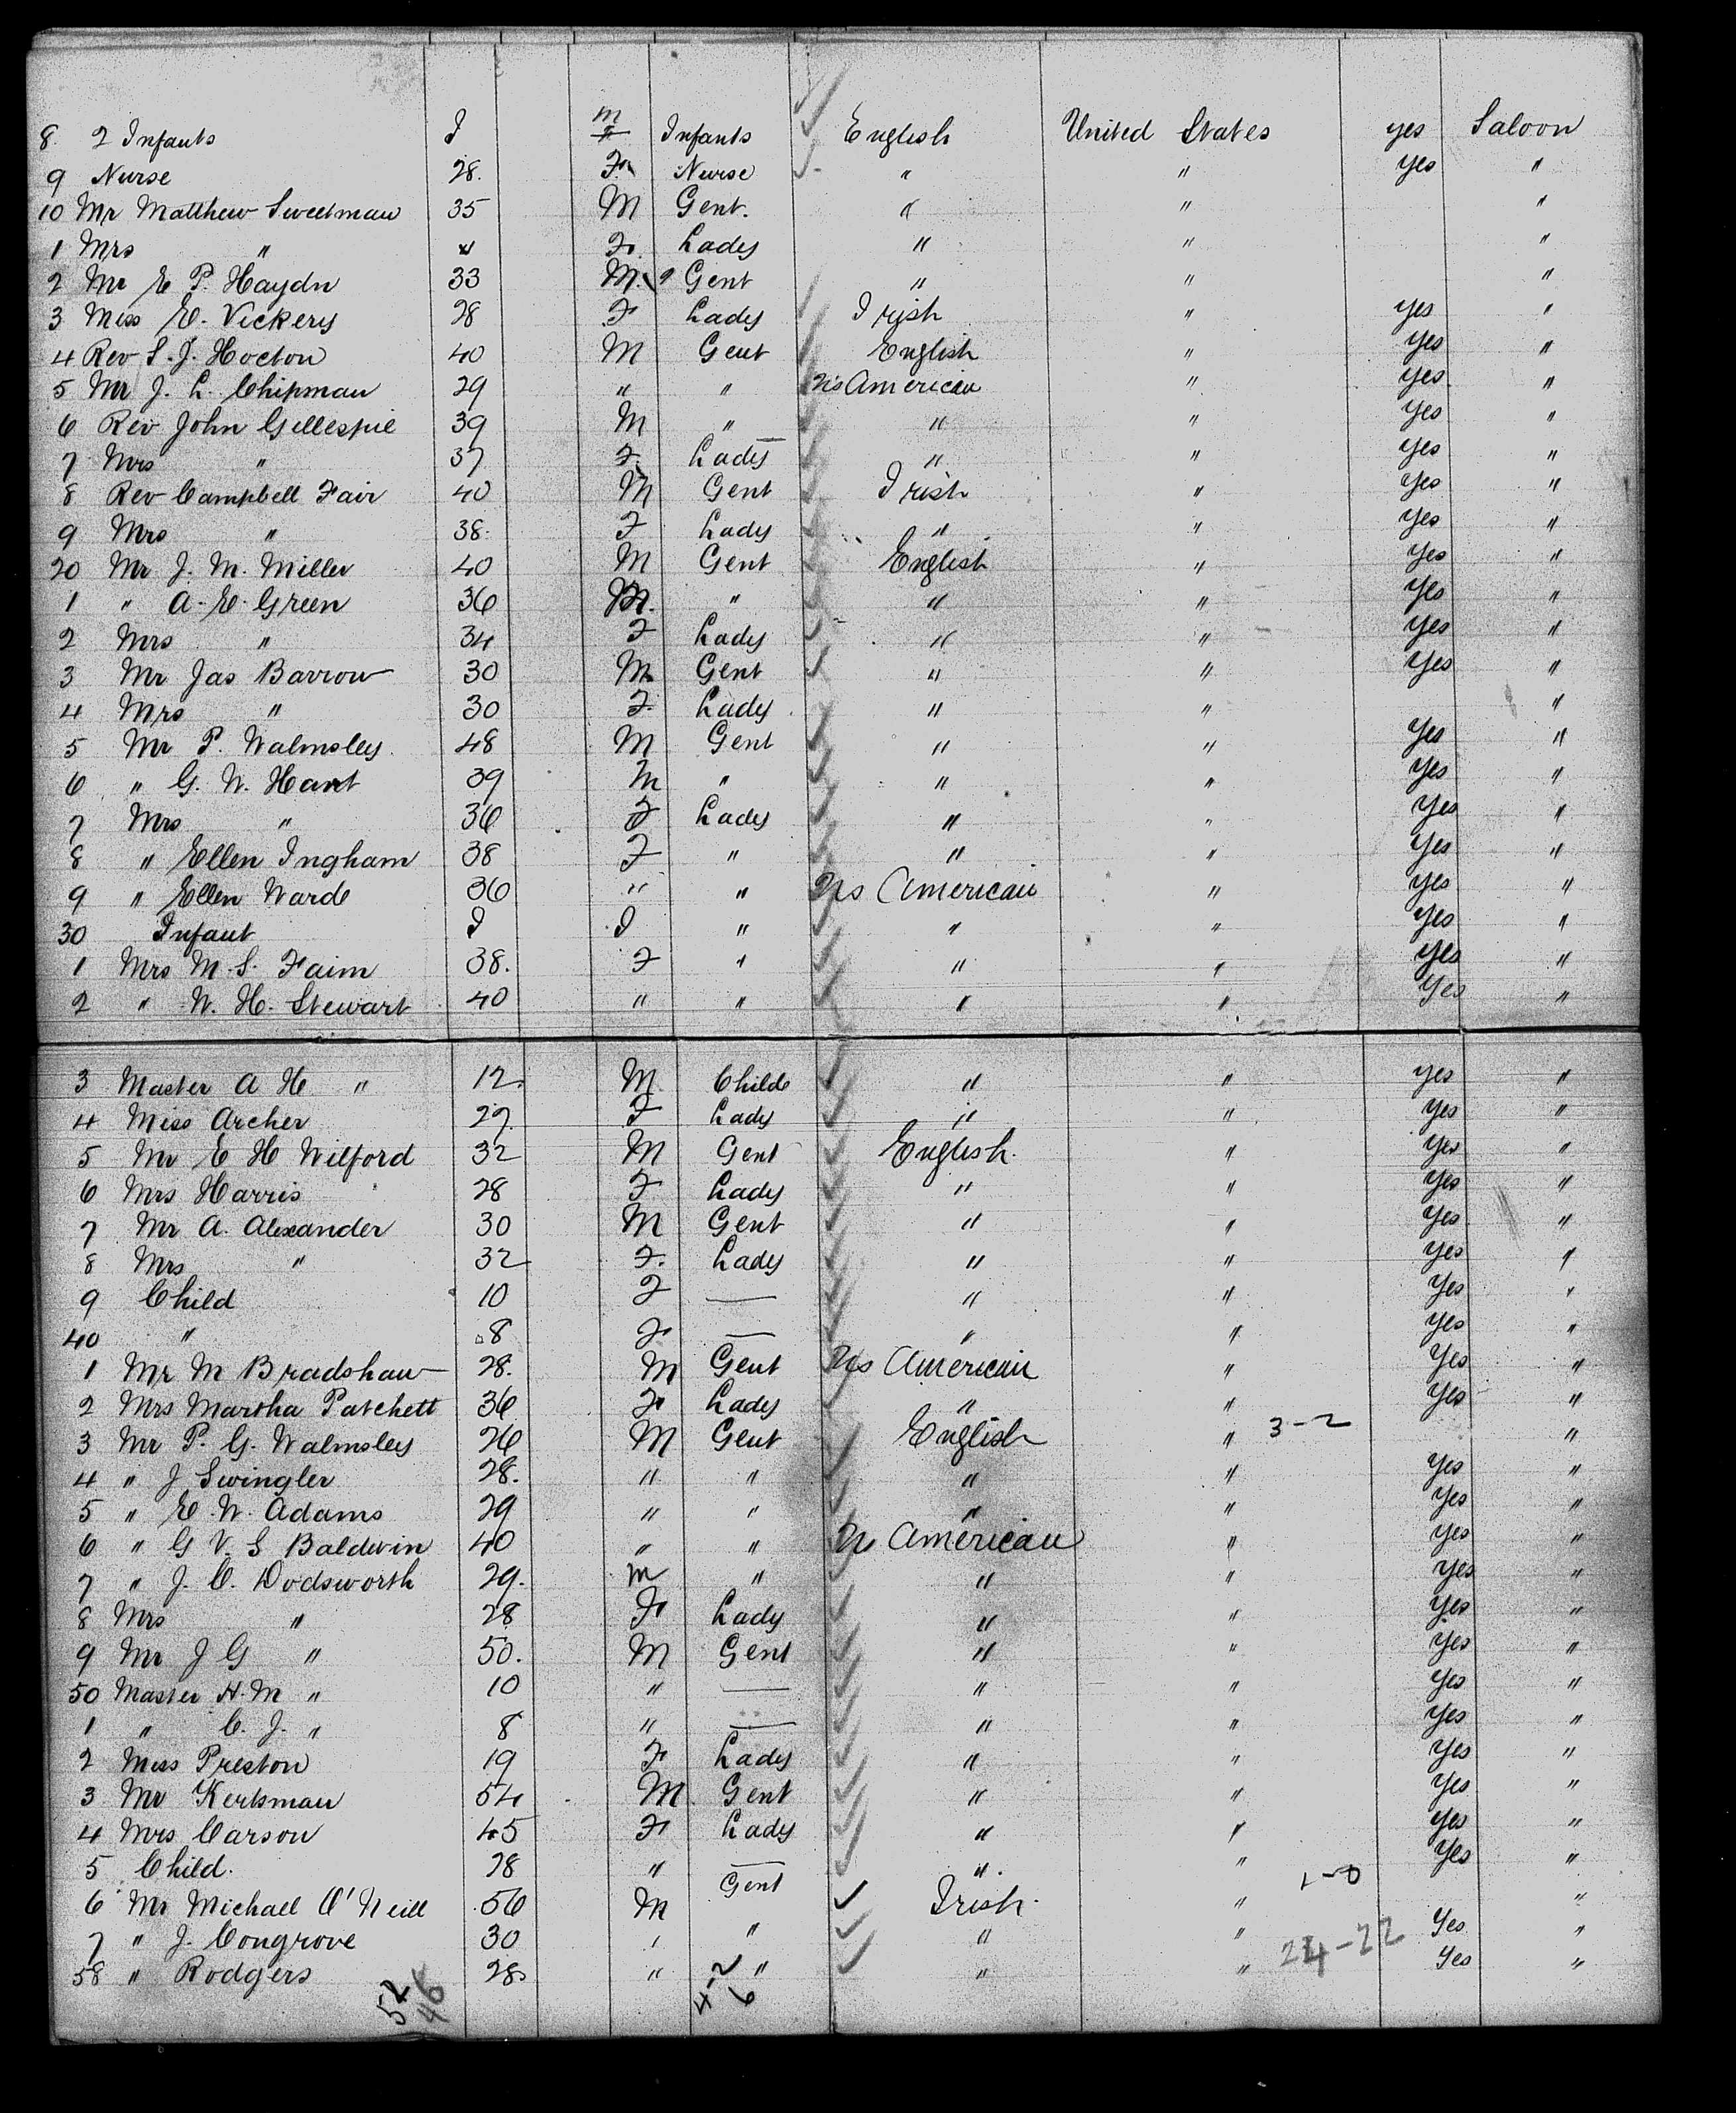 8. 2 Infants I M F Infants English United States yes Saloon
9 Nurse 28. F. Nurse " " Yes "
10 Mr Matthew Sweetman 35 M Gent. " " "
1 Mrs " F. Lady " " "
2 Mr E P. Haydn 33 M. Gent " " "
3 Miss E. Vickery 28 F Lady Irish " yes "
4 Rev S. J. Hocton 40 M Gent English " Yes "
5 Mr J. L. Chipman 29 " " Us American " Yes "
6 Rev John Gillespie 39 M " " " Yes "
7 Mrs " 37 F. Lady " " Yes "
8 Rev Campbell Fair 40 M Gent Irish " Yes "
9 Mrs " 38. F Lady " " Yes "
20 Mr J. M. Miller 40 M Gent English " Yes "
1 " A. E. Green 36 M. " " " Yes "
2 Mrs " 34 F Lady " " Yes "
3 Mr Jas Barrow 30 M. Gent " " Yes "
4 Mrs " 30 F. Lady. " " "
5 Mr P. Walmsley. 48 M Gent " " Yes "
6 " G. W. Hant 39 M " " " Yes "
7 Mrs " 36 F Lady " " Yes "
8 " Ellen Ingham 38 F " " " Yes "
9 " Ellen Ward 36 " " Us American " Yes "
30 Infant I I " " " Yes "
1 Mrs M. S. Faim 38. F " " " Yes "
2 " W. H. Stewart 40 " " " " Yes "
3 Master A H " 12. M. Child " " Yes "
4 Miss Archer 27. F Lady " " Yes "
5 Mr E H Wilford 32 M Gent English. " Yes "
6 Mrs Harris 28 F Lady " " Yes "
7 Mr A. Alexander 30 M Gent " " Yes "
8 Mrs " 32 F. Lady " " Yes "
9 Child 10 F — " " Yes "
40 " 8 F — " " Yes "
1 Mr M Bradshaw 28. M Gent Us American " Yes "
2 Mrs Martha Patchett 36 F Lady " " Yes "
3 Mr P. G. Walmsley 26 M Gent English " 3-2 "
4 " J Swingler 28. " " " " Yes "
5 " E. W. Adams 29 " " " " Yes "
6 " G V. S Baldwin 40 " " U American " Yes "
7 " J. C. Dodsworth 29. M " " " Yes "
8 Mrs " 28 F Lady " " Yes "
9 Mr J G " 50. M Gent " " Yes "
50 Master H. M " 10 " — " " Yes "
1 " C. J. " 8 " — " " Yes "
2 Miss Preston 19 F Lady " " Yes "
3 Mr Kerksman 54 M. Gent " " Yes "
4 Mrs Carson 45 F Lady " " Yes "
5 Child. 28 " — ". " Yes "
6 Mr Michael O'Neill 56 M Gent Irish. " 1-0 "
7 " J. Congrove 30 " " " " Yes "
58 " Rodgers 28. " " " " 24-22 Yes "
52
46
4-2
6